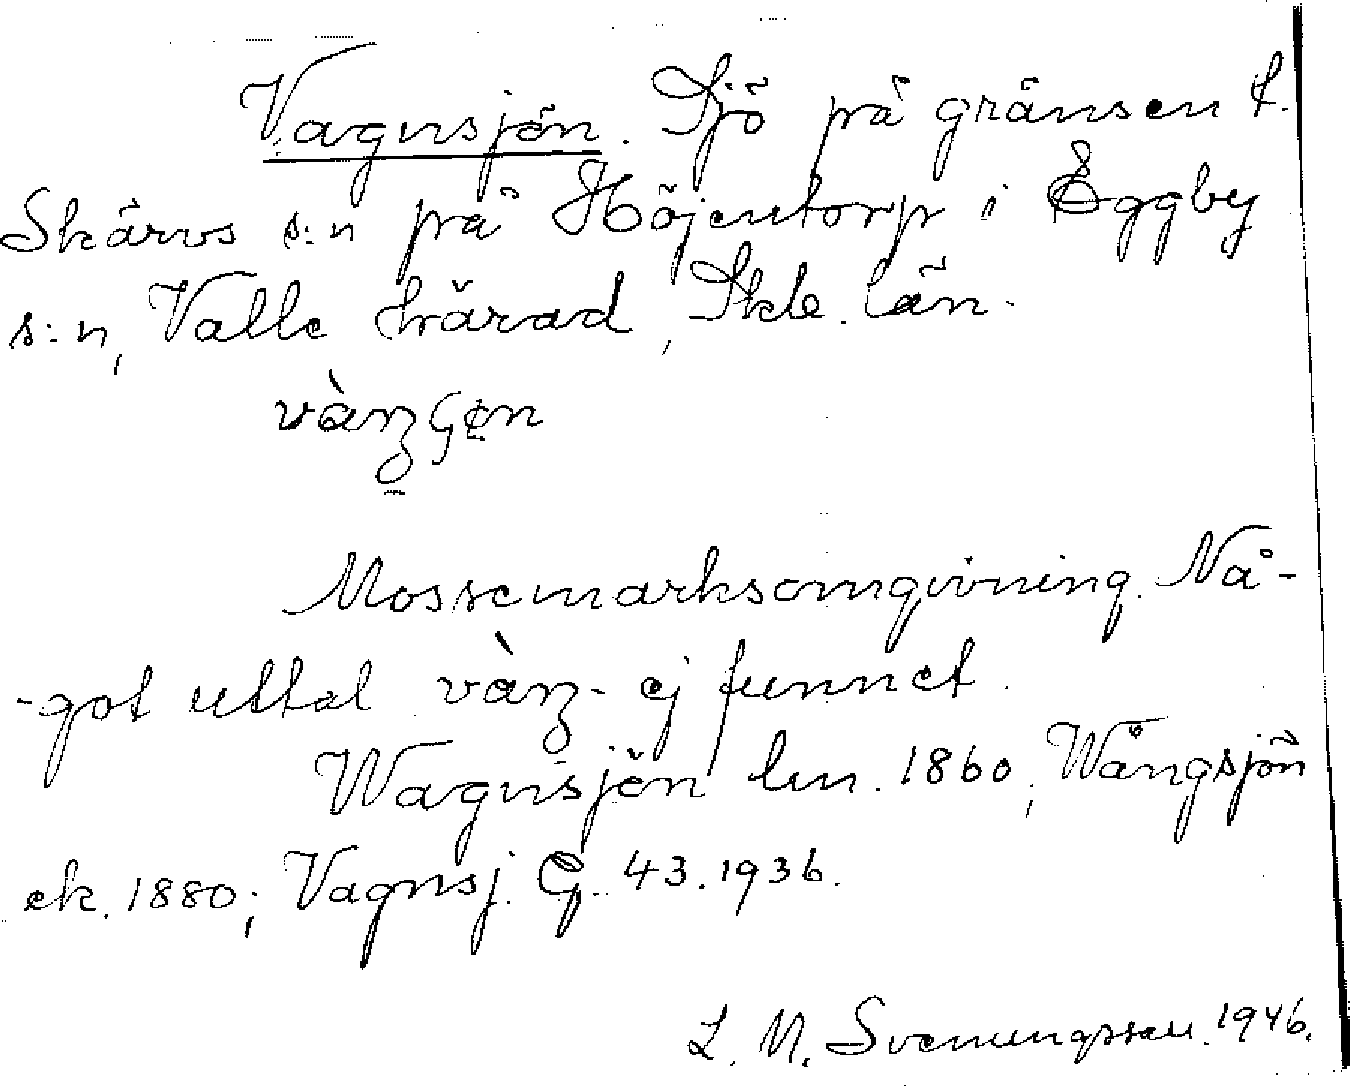 Vagnsjön. Sjö på gränsen t.
Skärvs s:n på Höjentorp i Eggby
s:n, Valle härad, Skb. län.
Mossemarksomgivning. Nå-
-got uttal ej funnet.
Wagnsjön lm. 1860; Wångsjön
ek. 1880; Vagnsj. G. 43. 1936.
L. M. Svenungsson. 1946.